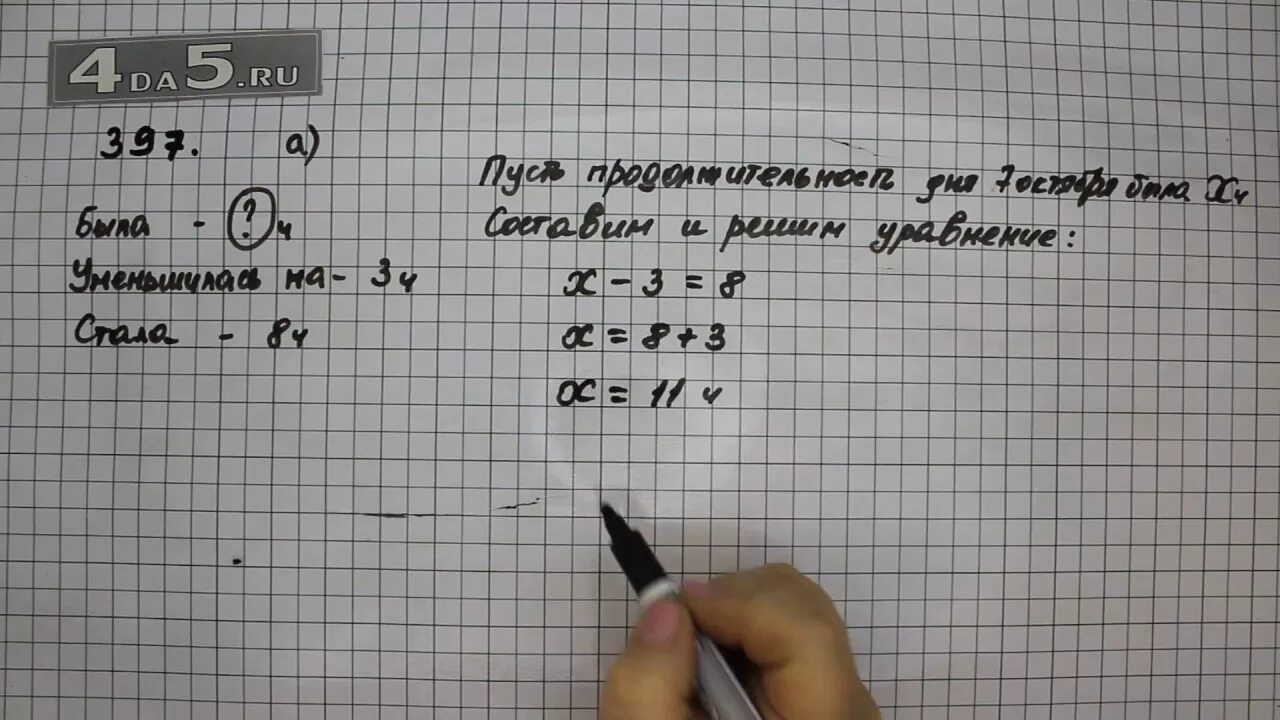 4DA5.RU
397. а)
Была - ? ч
Уменьшилась на - 3 ч
Стала - 8 ч
Пусть продолжительность дня 7 октября была x ч
Составим и решим уравнение:
x - 3 = 8
x = 8 + 3
x = 11 ч